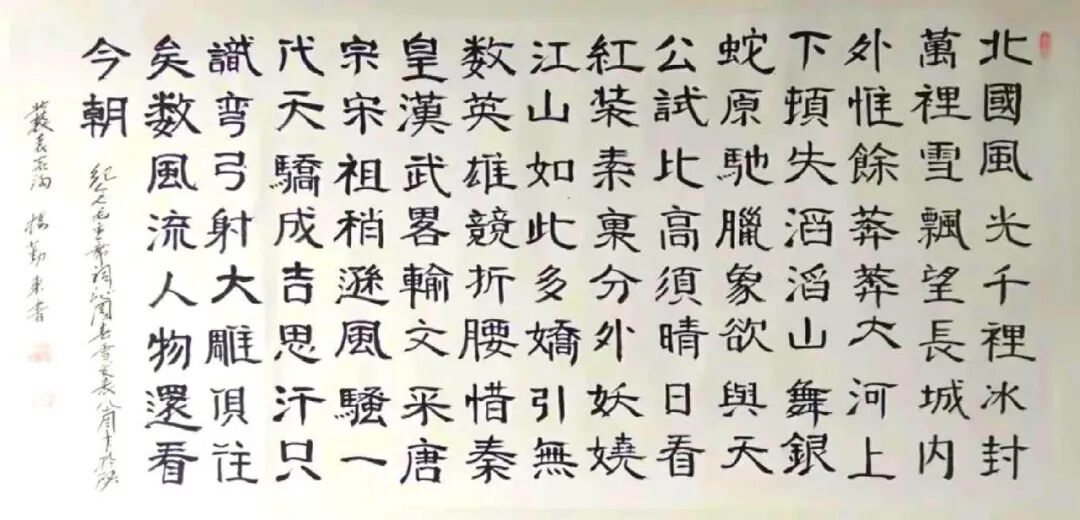 北國風光千裡冰封
萬裡雪飄望長城內
外惟餘莽莽大河上
下頓失滔滔山舞銀
蛇原馳臘象欲與天
公試比高須晴日看
紅裝素裹分外妖嬈
江山如此多嬌引無
数英雄競折腰惜秦
皇漢武畧輸文采唐
宗宋祖稍遜風騷一
代天驕成吉思汗只
識彎弓射大雕俱往
矣数風流人物還看
今朝
紀念毛主席詞
勤東書